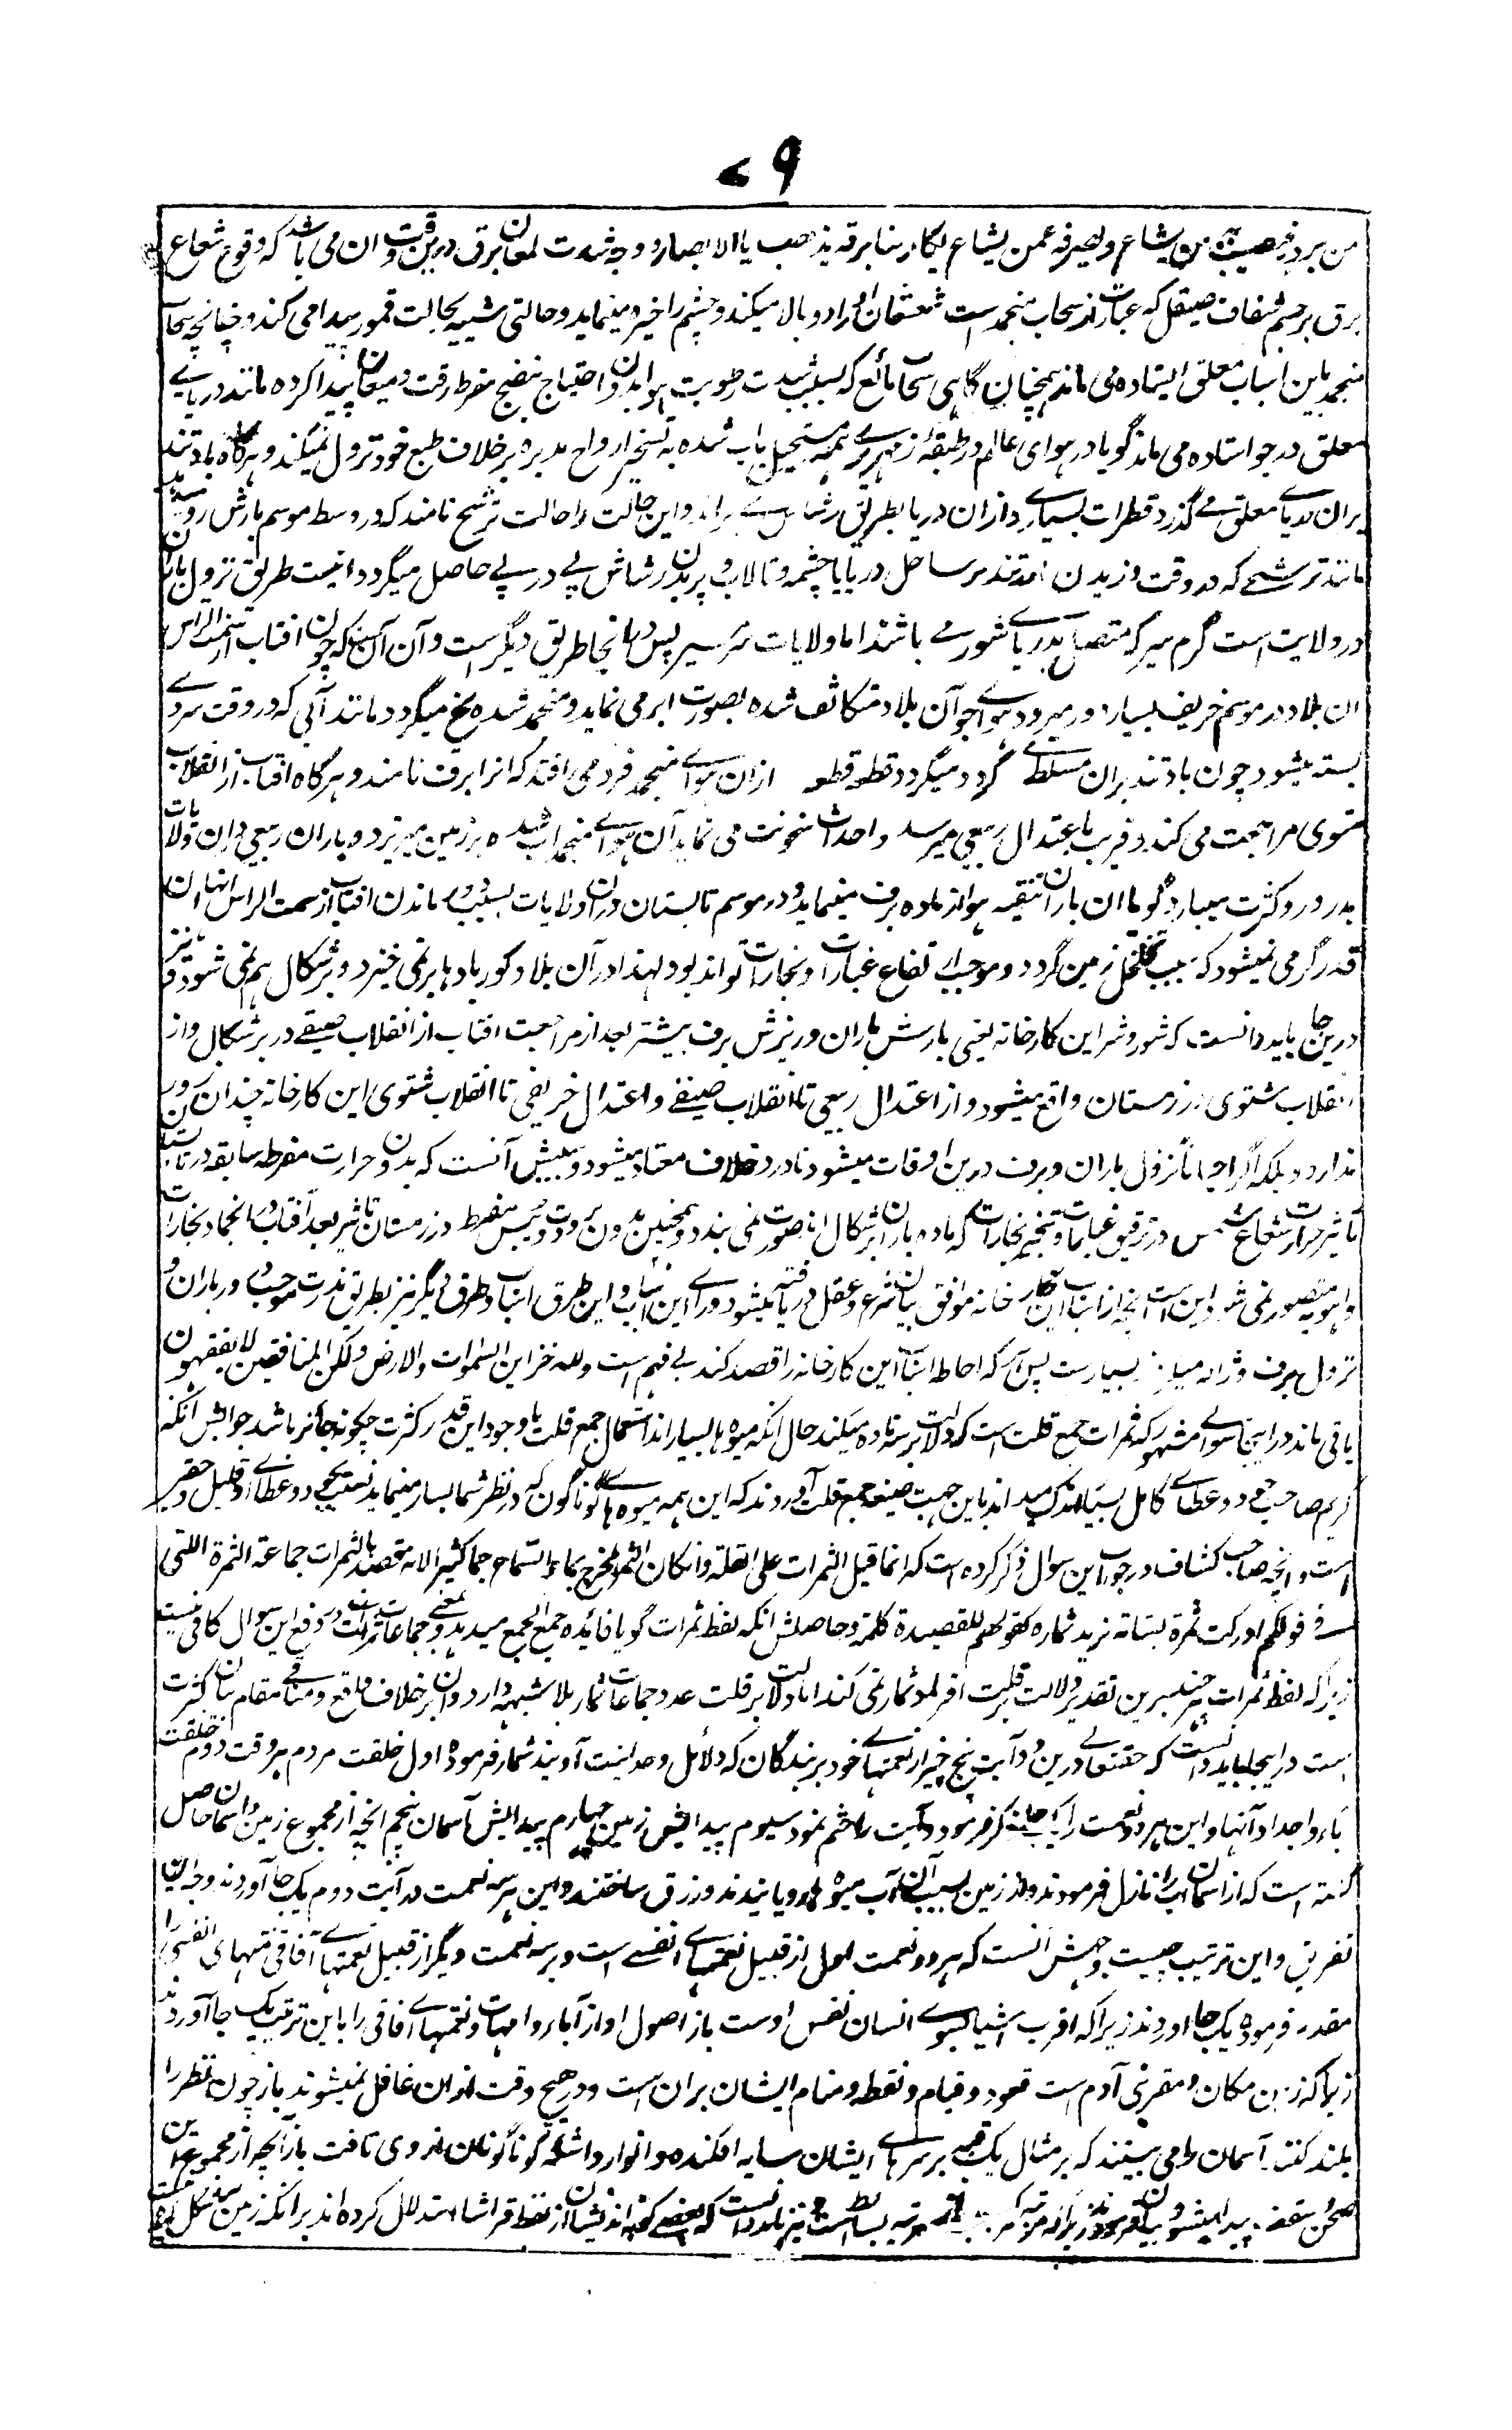 ۷۹
من برد فیصیب به من یشاء ویصرفه عمن یشاء یکاد سنا برقه یذهب بالابصار و وجه شدت لمعان برق درین وقت ان می باشد که وقوع شعاع
برق بر جسم شفاف صیقل که عبارت از سحاب منجمد است شعشعان او را دوبالا میکند و چشم را خیره مینماید و حالتی شبیه بحالت قمور پیدا می کند و چنانچه سحاب
منجمد باین اسباب معلق ایستاده می ماند همچنان گاهی سحاب مائع که بسبب شدت رطوبت هوا بدون احتیاج بنضج مفرط رقت و میعان پیدا کرده مانند دریای
معلق در جو استاده می ماند گویا در هوای عالم در طبقه زمهریریه همه مستحیل باب شده به تسخیر ارواح مدبره بر خلاف طبع خود نزول نمیکند و هرگاه باد تند
بران دریای معلق می گذرد قطرات بسیار ازان دریا بطریق رشاش می براید و این حالت را حالت ترشح نامند که در وسط موسم بارش رو میدهد
مانند ترشحی که در وقت وزیدن باد تند بر ساحل دریا یا چشمه و تالاب و پریدن رشاش پی در پی حاصل میگردد اینست طریق نزول باران
در ولایت است گرم سیر که متصل بدریای شور می باشند اما ولایات سرد سیر پس در انجا طریق دیگر است و آن آنست که چون افتاب از سمت الراس
ان بلاد در موسم خریف بسیار دور میرود هوای جو آن بلاد متکاثف شده بصورت ابر می نماید و منجمد شده یخ میگردد مانند آبی که در وقت سردی
بسته میشود چون باد تند بران مسلط گردد میگردد قطعه قطعه ازان هوای منجمد فرد می افتد که انرا برف نامند و هرگاه افتاب از انقلاب
شتوی مراجعت می کند و قریب باعتدال ربیعی میرسد و احداث سخونت می نماید آن هوای منجمد آب شده بزمین میریزد و باران ربیعی دران ولایات
بدر و در و کثرت میبارد گویا ان باران تنقیه هوا از ماده برف مینماید و در موسم تابستان دران ولایات بسبب دور ماندن افتاب از سمت الراس انها ان
قدر گرمی نمیشود که سبب تخلخل زمین گردد و موجب ارتفاع غبارات و بخارات تواند بود لهذا در آن بلاد کور بادها بر نمی خیزد و برشکال هم نمی شود و نیز
درین جا باید دانست که شور و شر این کارخانه یعنی بارش باران و ریزش برف بیشتر بعد از مراجعت افتاب از انقلاب صیفی در برشکال و از
انقلاب شتوی در زمستان واقع میشود و از اعتدال ربیعی تا انقلاب صیفی و اعتدال خریفی تا انقلاب شتوی این کارخانه چندان رو
ندارد بلکه اگر احیاناً نزول باران و برف درین اوقات میشود نادر و خلاف معتاد میشود و سببش آنست که بدون حرارت مفرطه سابقه در تابستان
تاثیر حرارت شعاع شمس در ترقیق غبارات و تبخیر بخارات که ماده باران برشکال اند صورت نمی بندد و همچنین بدون برودت و یبس مفرط در زمستان تاثیر بعد آفتاب در انجماد بخارات
واهویه متصور نمی شود این است انچه از اسباب این کارخانه موافق بیان شرع و عقل دریافته میشود و ورای این اسباب و این طرق اسباب و طرق دیگر نیز بطریق ندرت موجب ورود باران و
نزول برف و ژاله میباشد بسیارست پس آنکه احاطه اسباب این کارخانه را قصد کند بی فهم است ولله خزاین السموات والارض ولکن المنافقین لا یفقهون
باقی ماند در اینجا سوالی مشهور که ثمرات جمع قلت است که دلالت بر سه تا ده میکند حال انکه میوه ها بسیار اند استعمال جمع قلت با وجود این قدر کثرت چگونه جائز باشد جوابش انکه
کریم صاحب جود و عطای کامل بسیار را اندک میداند باین جهت صیغه جمع قلت آوردند که این همه میوه های گوناگون که در نظر شما بسار مینماید نسبت بجود و عطای او قلیل و حقیر
است و انچه صاحب کشاف در جواب این سوال ذکر کرده است که انما قیل الثمرات علی القلة وانکان الثمر المخرج بماء السماء جما کثیرا لانه مقصد بالثمرات جماعة الثمرة اللتی
فی قولکم ادرکت ثمرة بستانه نرید ثماره کقولهم للقصیدة کلمة و حاصلش انکه لفظ ثمرات گویا فائده جمع الجمع میدهد بمعنی جماعات ثمرات در دفع این سوال کافی نیست
زیرا که لفظ ثمرات هرچند برین تقدیر دلالت بر قلت افراد ثمار نمی کند اما دلالت بر قلت عدد جماعات ثمار بلاشبهه دارد و ان بر خلاف واقع و منافی مقام بیان کثرت
است در اینجا باید دانست که حق تعالی درین دو آیت پنج چیز از نعمتهای خود بر بندگان که دلائل وحدانیت آویند شمار فرموده اول خلقت مردم هر وقت دوم خلقت
آباء و اجداد آنها و این هر دو نعمت را یکجا ذکر فرموده و آیت را ختم نمود سیوم پیدایش زمین چهارم پیدایش آسمان پنجم انچه از مجموع زمین و آسمان حاصل
گشته است که از آسمان اب را نازل فرمودند و از زمین بسبب آن آب میوه ها رویانیدند و رزق ساختند و این هر سه نعمت در آیت دوم یک جا آوردند وجه این
تفریق و این ترتیب چیست وجهش انست که هر دو نعمت اول از قبیل نعمتهای انفسی است و هر سه نعمت دیگر از قبیل نعمتهای آفاقی نعمتهای انفسی را
مقدم فرموده یک جا اوردند زیرا که اقرب اشیا بسوی انسان نفس اوست باز اصول او از آباء و امهات و نعمتهای آفاقی را باین ترتیب یک جا آوردند
زیرا که زمین مکان و مقر بنی آدم است قعود و قیام و نقطه و منام ایشان بران است و در هیچ وقت ازان غافل نمیشوند باز چون نظر را
بلند کنند آسمان را می بینند که بر مثال یک قبه بر سرهای ایشان سایه افکنده و انوار و اشعه گوناگون ازوی تافت باز آنچه از مجموع این
صحن و سقف پیدا میشود بیان فرمودند زیرا که مرتبه مرکب بعد از مرتبه بسائط است و نیز باید دانست که بعضی کوته اندیشان از لفظ فراشا استدلال کرده اند بر انکه زمین